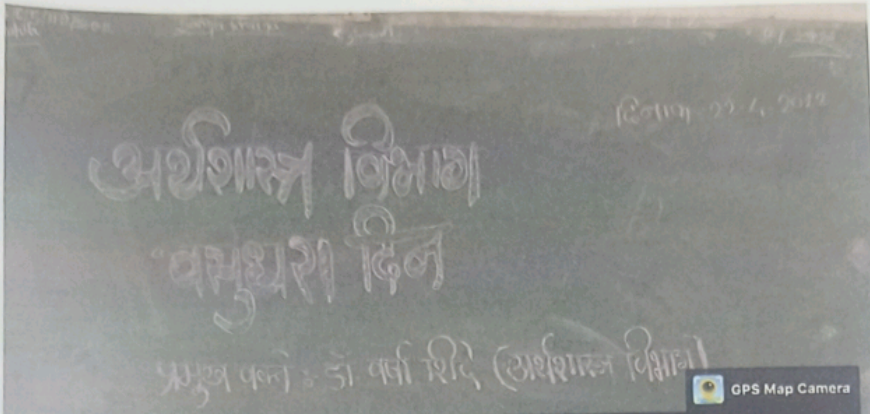 दिनांक 22.4.2022
अर्थशास्त्र विभाग
"वसुंधरा दिन
प्रमुख वक्ते : डॉ. वर्षा शिंदे (अर्थशास्त्र विभाग)
GPS Map Camera